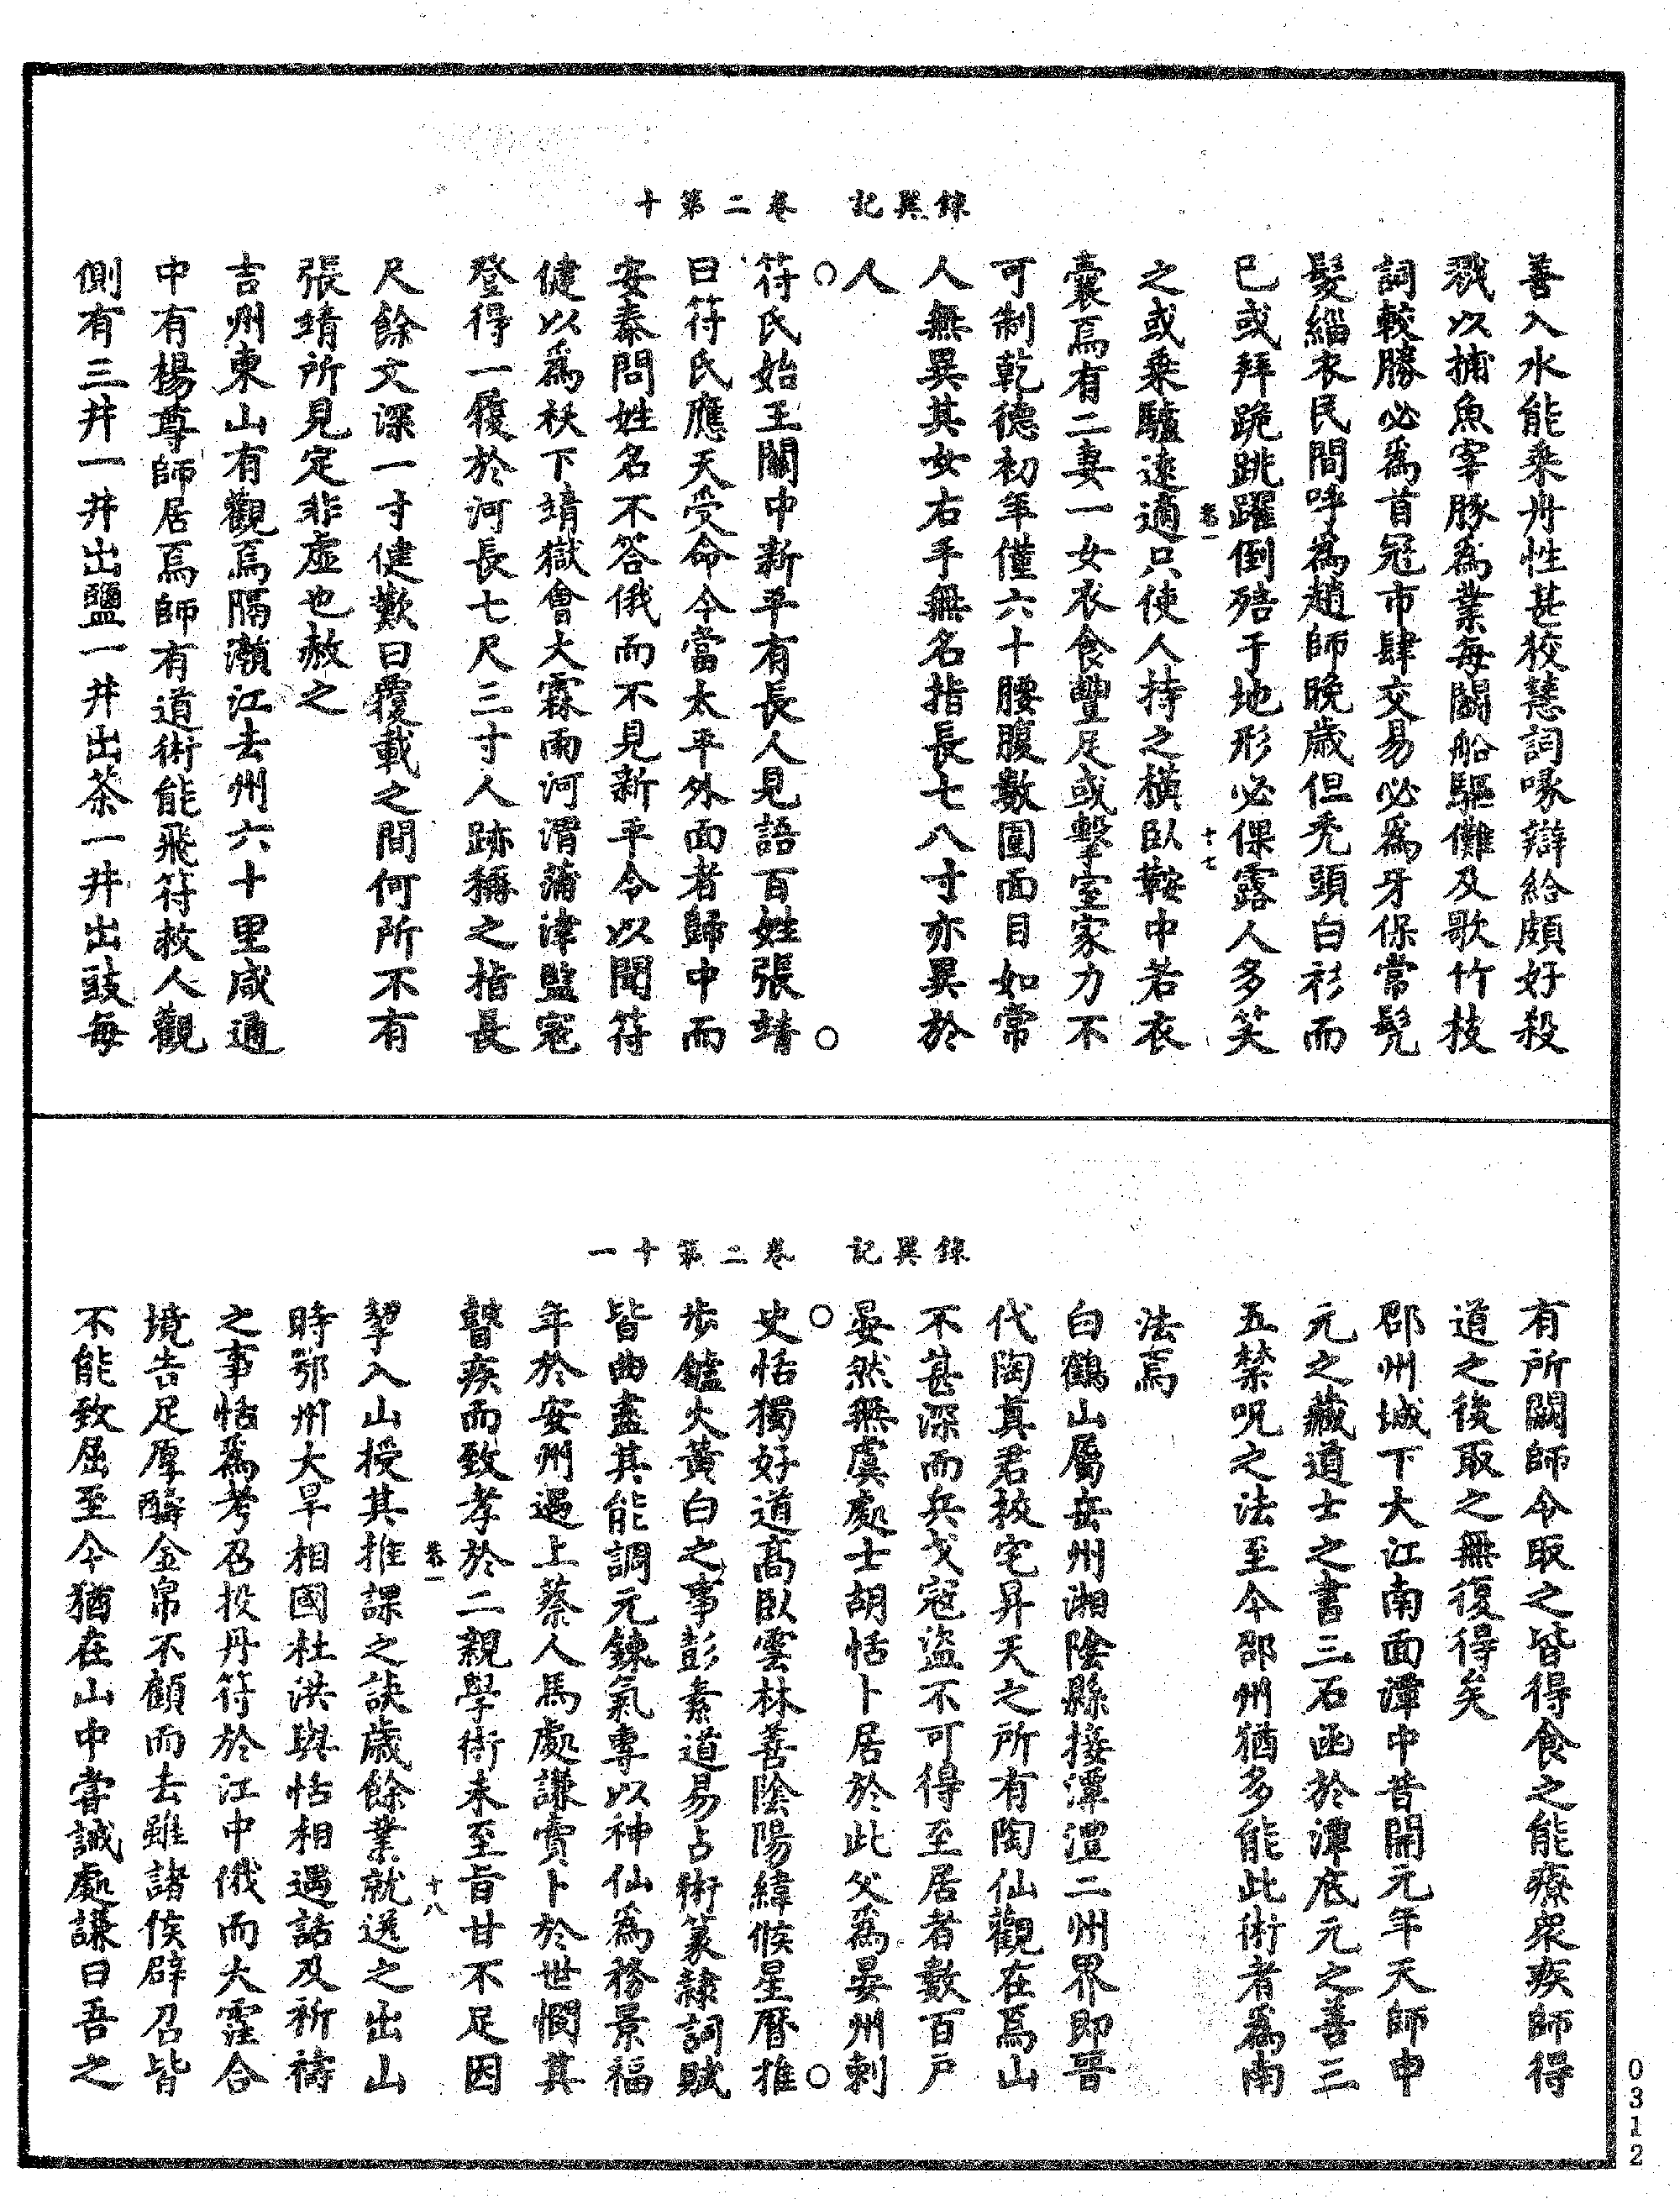 錄異記　卷二第十
善入水能乘舟性甚狡慧詞喙辯給頗好殺
戮以捕魚宰豚為業每鬬船驅儺及歌竹枝
詞較勝必為首冠市肆交易必為牙保常髡
髮緇衣民間呼為趙師晚歲但禿頭白衫而
已或拜跪跳躍倒踣于地形必倮露人多笑
卷一　十七
之或乘驢遠適只使人持之橫臥鞍中若衣
囊焉有二妻一女衣食豐足或擊室家力不
可制乾德初年僅六十腰腹數圍面目如常
人無異其女右手無名指長七八寸亦異於
人
○　○
符氏始王關中新平有長人見語百姓張靖
曰符氏應天受命今當太平外面者歸中而
安泰問姓名不答俄而不見新平令以聞符
健以為妖下靖獄會大霖雨河渭蒲津監寇
登得一履於河長七尺三寸人跡稱之指長
尺餘文深一寸健歎曰覆載之間何所不有
張靖所見定非虛也赦之
吉州東山有觀焉隔瀕江去州六十里咸通
中有楊尊師居焉師有道術能飛符救人觀
側有三井一井出鹽一井出茶一井出豉每
錄異記　卷二第十一
有所闕師令取之皆得食之能療眾疾師得
道之後取之無復得矣
邵州城下大江南面潭中昔開元年天師申
元之藏道士之書三石函於潭底元之善三
五禁呪之法至今邵州猶多能此術者為南
法焉
白鶴山屬岳州湘陰縣接潭澧二州界即晉
代陶真君拔宅昇天之所有陶仙觀在焉山
不甚深而兵戈寇盜不可得至居者數百戶
晏然無虞處士胡恬卜居於此父為晏州刺
○　○
史恬獨好道高臥雲林善陰陽緯候星曆推
步鑪火黃白之事彭素道易占術篆隸詞賦
皆曲盡其能調元鍊氣專以神仙為務景福
年於安州遇上蔡人馬處謙賣卜於世憫其
瞽疾而致孝於二親學術未至旨甘不足因
卷一　十八
挈入山授其推課之訣歲餘業就送之出山
時鄂州大旱相國杜洪與恬相遇話及祈禱
之事恬為考召投丹符於江中俄而大霔合
境告足厚酧金帛不顧而去雖諸侯辟召皆
不能致屈至今猶在山中嘗誡處謙曰吾之
0312